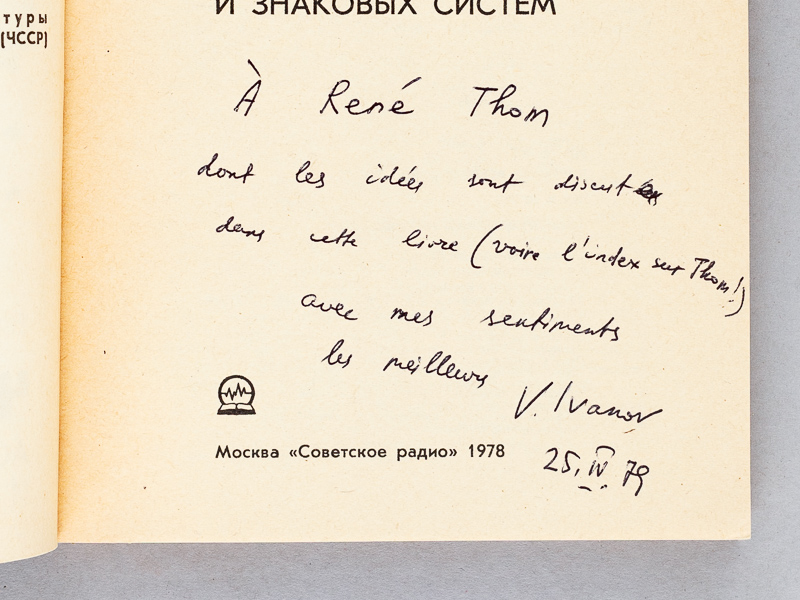 туры
(ЧССР)
И ЗНАКОВЫХ СИСТЕМ
À René Thom
dont les idées sont discutées
dans cette livre (voire l'index sur Thom!)
avec mes sentiments
les meilleurs
V. Ivanov
Москва «Советское радио» 1978
25.IV.79